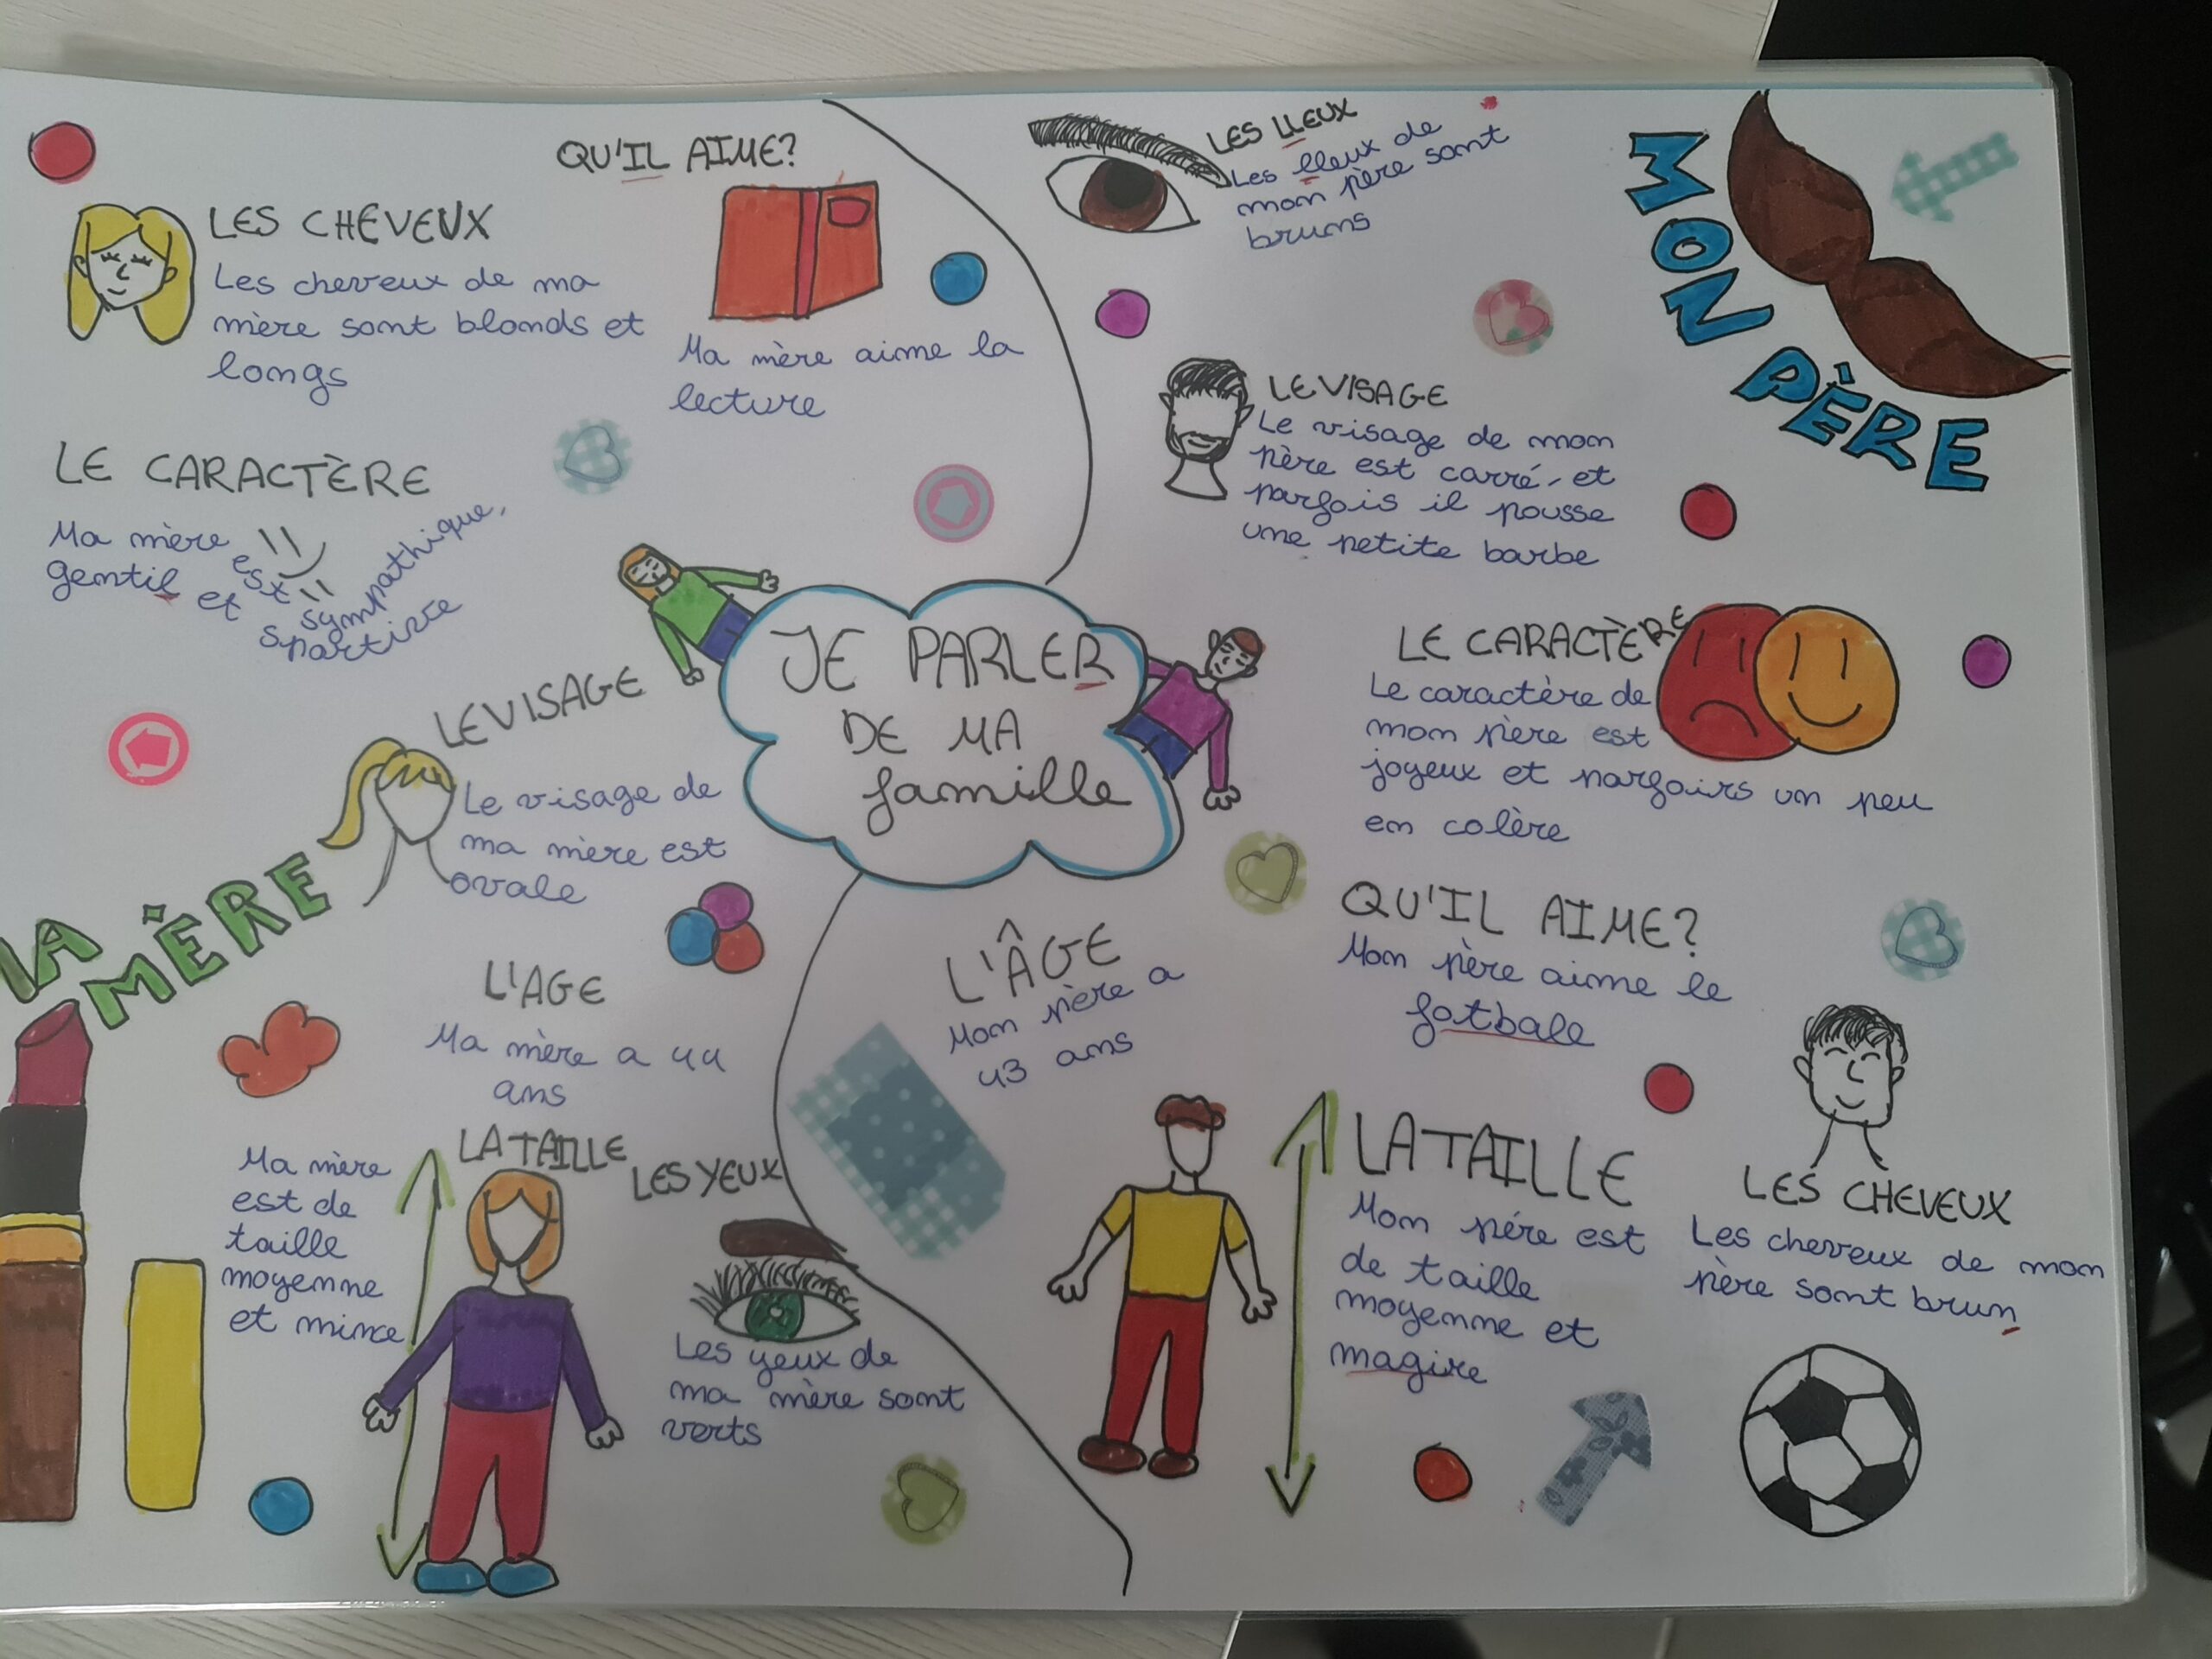 JE PARLER
DE MA
famille
LA
MÈRE
LES CHEVEUX
Les cheveux de ma
mère sont blonds et
longs
QU'IL AIME?
Ma mère aime la
lecture
LE CARACTÈRE
Ma mère est sympathique,
gentil et spartive
LE VISAGE
Le visage de
ma mère est
ovale
L'AGE
Ma mère a 44
ans
LA TAILLE
Ma mère
est de
taille
moyenne
et mince
LES YEUX
Les yeux de
ma mère sont
verts
MON PÈRE
LES LLEUX
Les lleux de
mon père sont
bruns
LE VISAGE
Le visage de mon
père est carré, et
parfois il pousse
une petite barbe
LE CARACTÈRE
Le caractère de
mon père est
joyeux et parfairs un peu
en colère
QU'IL AIME?
Mon père aime le
fotbale
L'ÂGE
Mon père a
43 ans
LA TAILLE
Mon pére est
de taille
moyenne et
magire
LES CHEVEUX
Les cheveux de mon
père sont brun